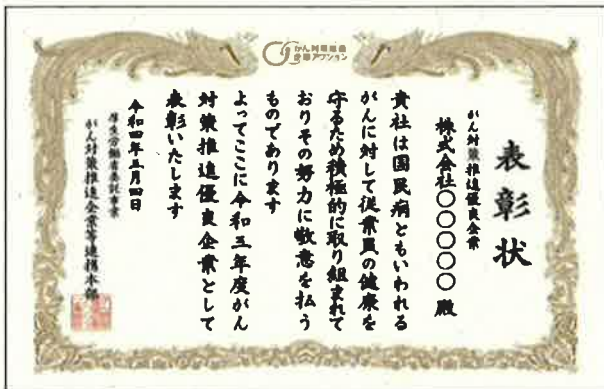 がん対策推進
企業アクション
表彰状
がん対策推進優良企業
株式会社〇〇〇〇〇 殿
貴社は国民病ともいわれる
がんに対して従業員の健康を
守るため積極的に取り組まれて
おりその努力に敬意を払う
ものであります
よってここに令和三年度がん
対策推進優良企業として
表彰いたします
令和四年三月四日
厚生労働省委託事業
がん対策推進企業等連携本部